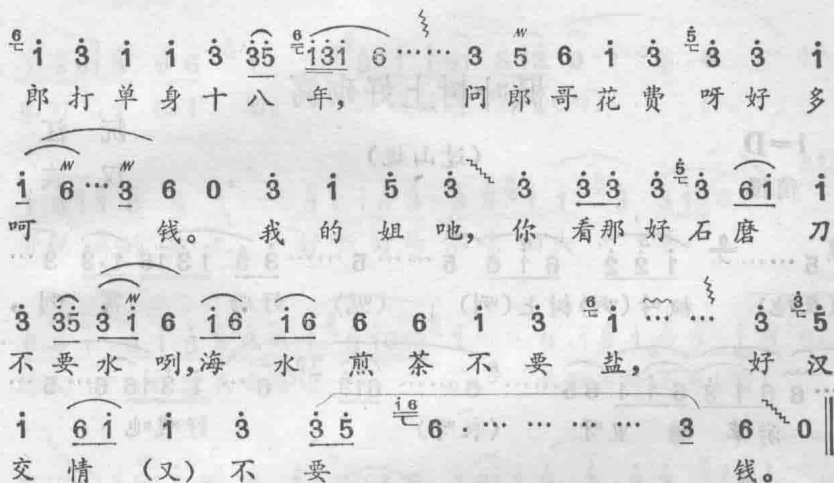 6 i 3 i i 3 35 6 i3i 6 …… 3 5 6 i 3 5 3 3 i
郎打单身十八年， 问郎哥花费呀好多
i 6 … 3 6 0 3 i 5 3 3 33 3 5 3 6i i
呵 钱。 我的姐吔，你看那好石磨刀
3 35 3i 6 i6 i6 6 6 i 3 6 i …… 3 3 5
不要水咧，海水煎茶不要盐， 好汉
i 6i i 3 35 i6 6 … … … … 3 6 0
交情（又）不要 钱。